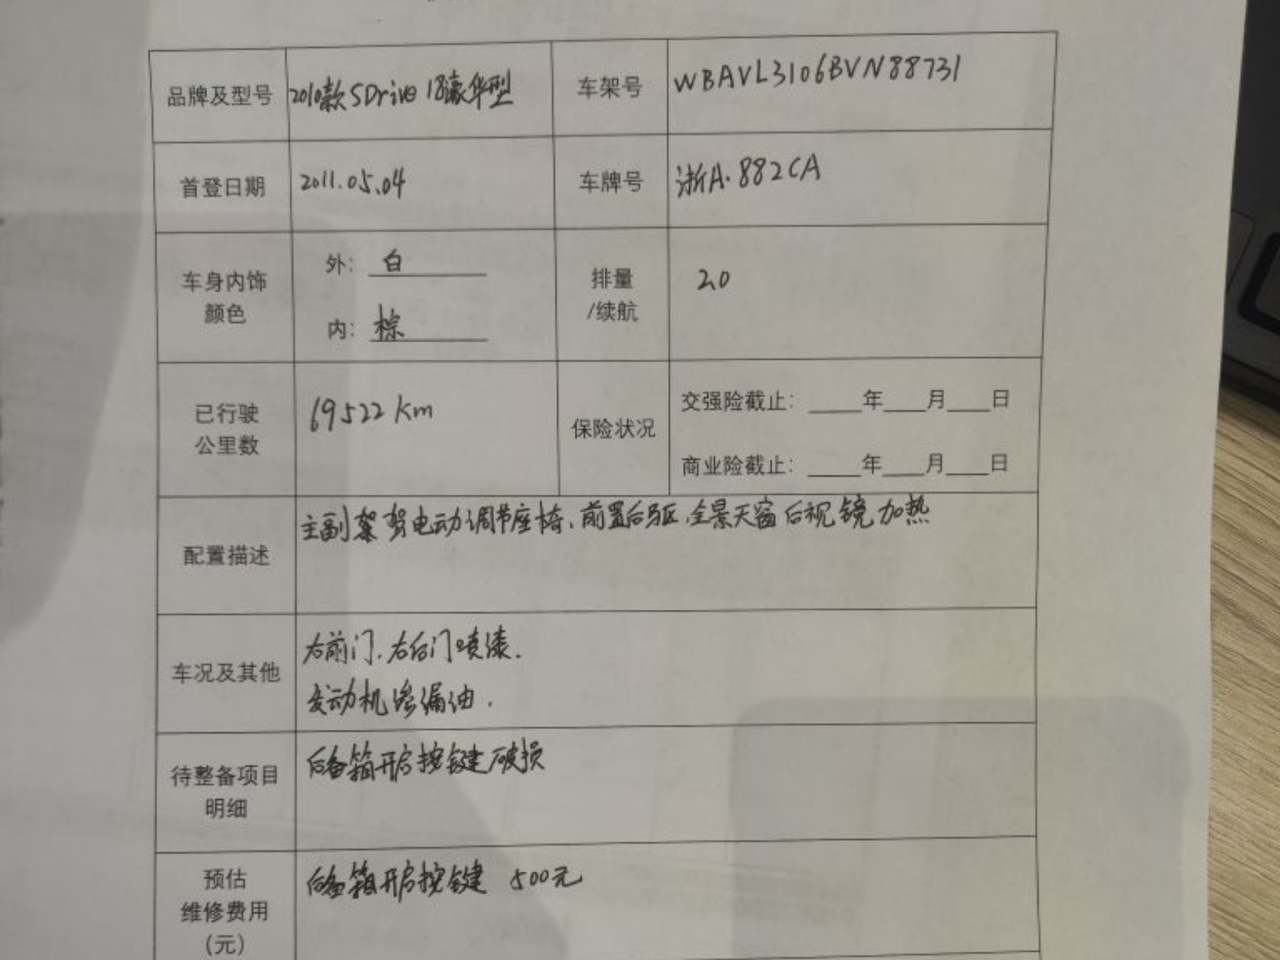 品牌及型号 2010款SDrive 18豪华型 车架号 WBAVL3106BVN88731
首登日期 2011.05.04 车牌号 浙A·882CA
车身内饰
颜色
外: 白
内: 棕
排量
/续航
2.0
已行驶
公里数
69522 km
保险状况
交强险截止: ____年___月___日
商业险截止: ____年___月___日
配置描述
主副架驾电动调节座椅、前置后驱.全景天窗后视镜加热
车况及其他
右前门.右后门喷漆.
发动机渗漏油.
待整备项目
明细
后备箱开启按键破损
预估
维修费用
(元)
后备箱开启按键 500元